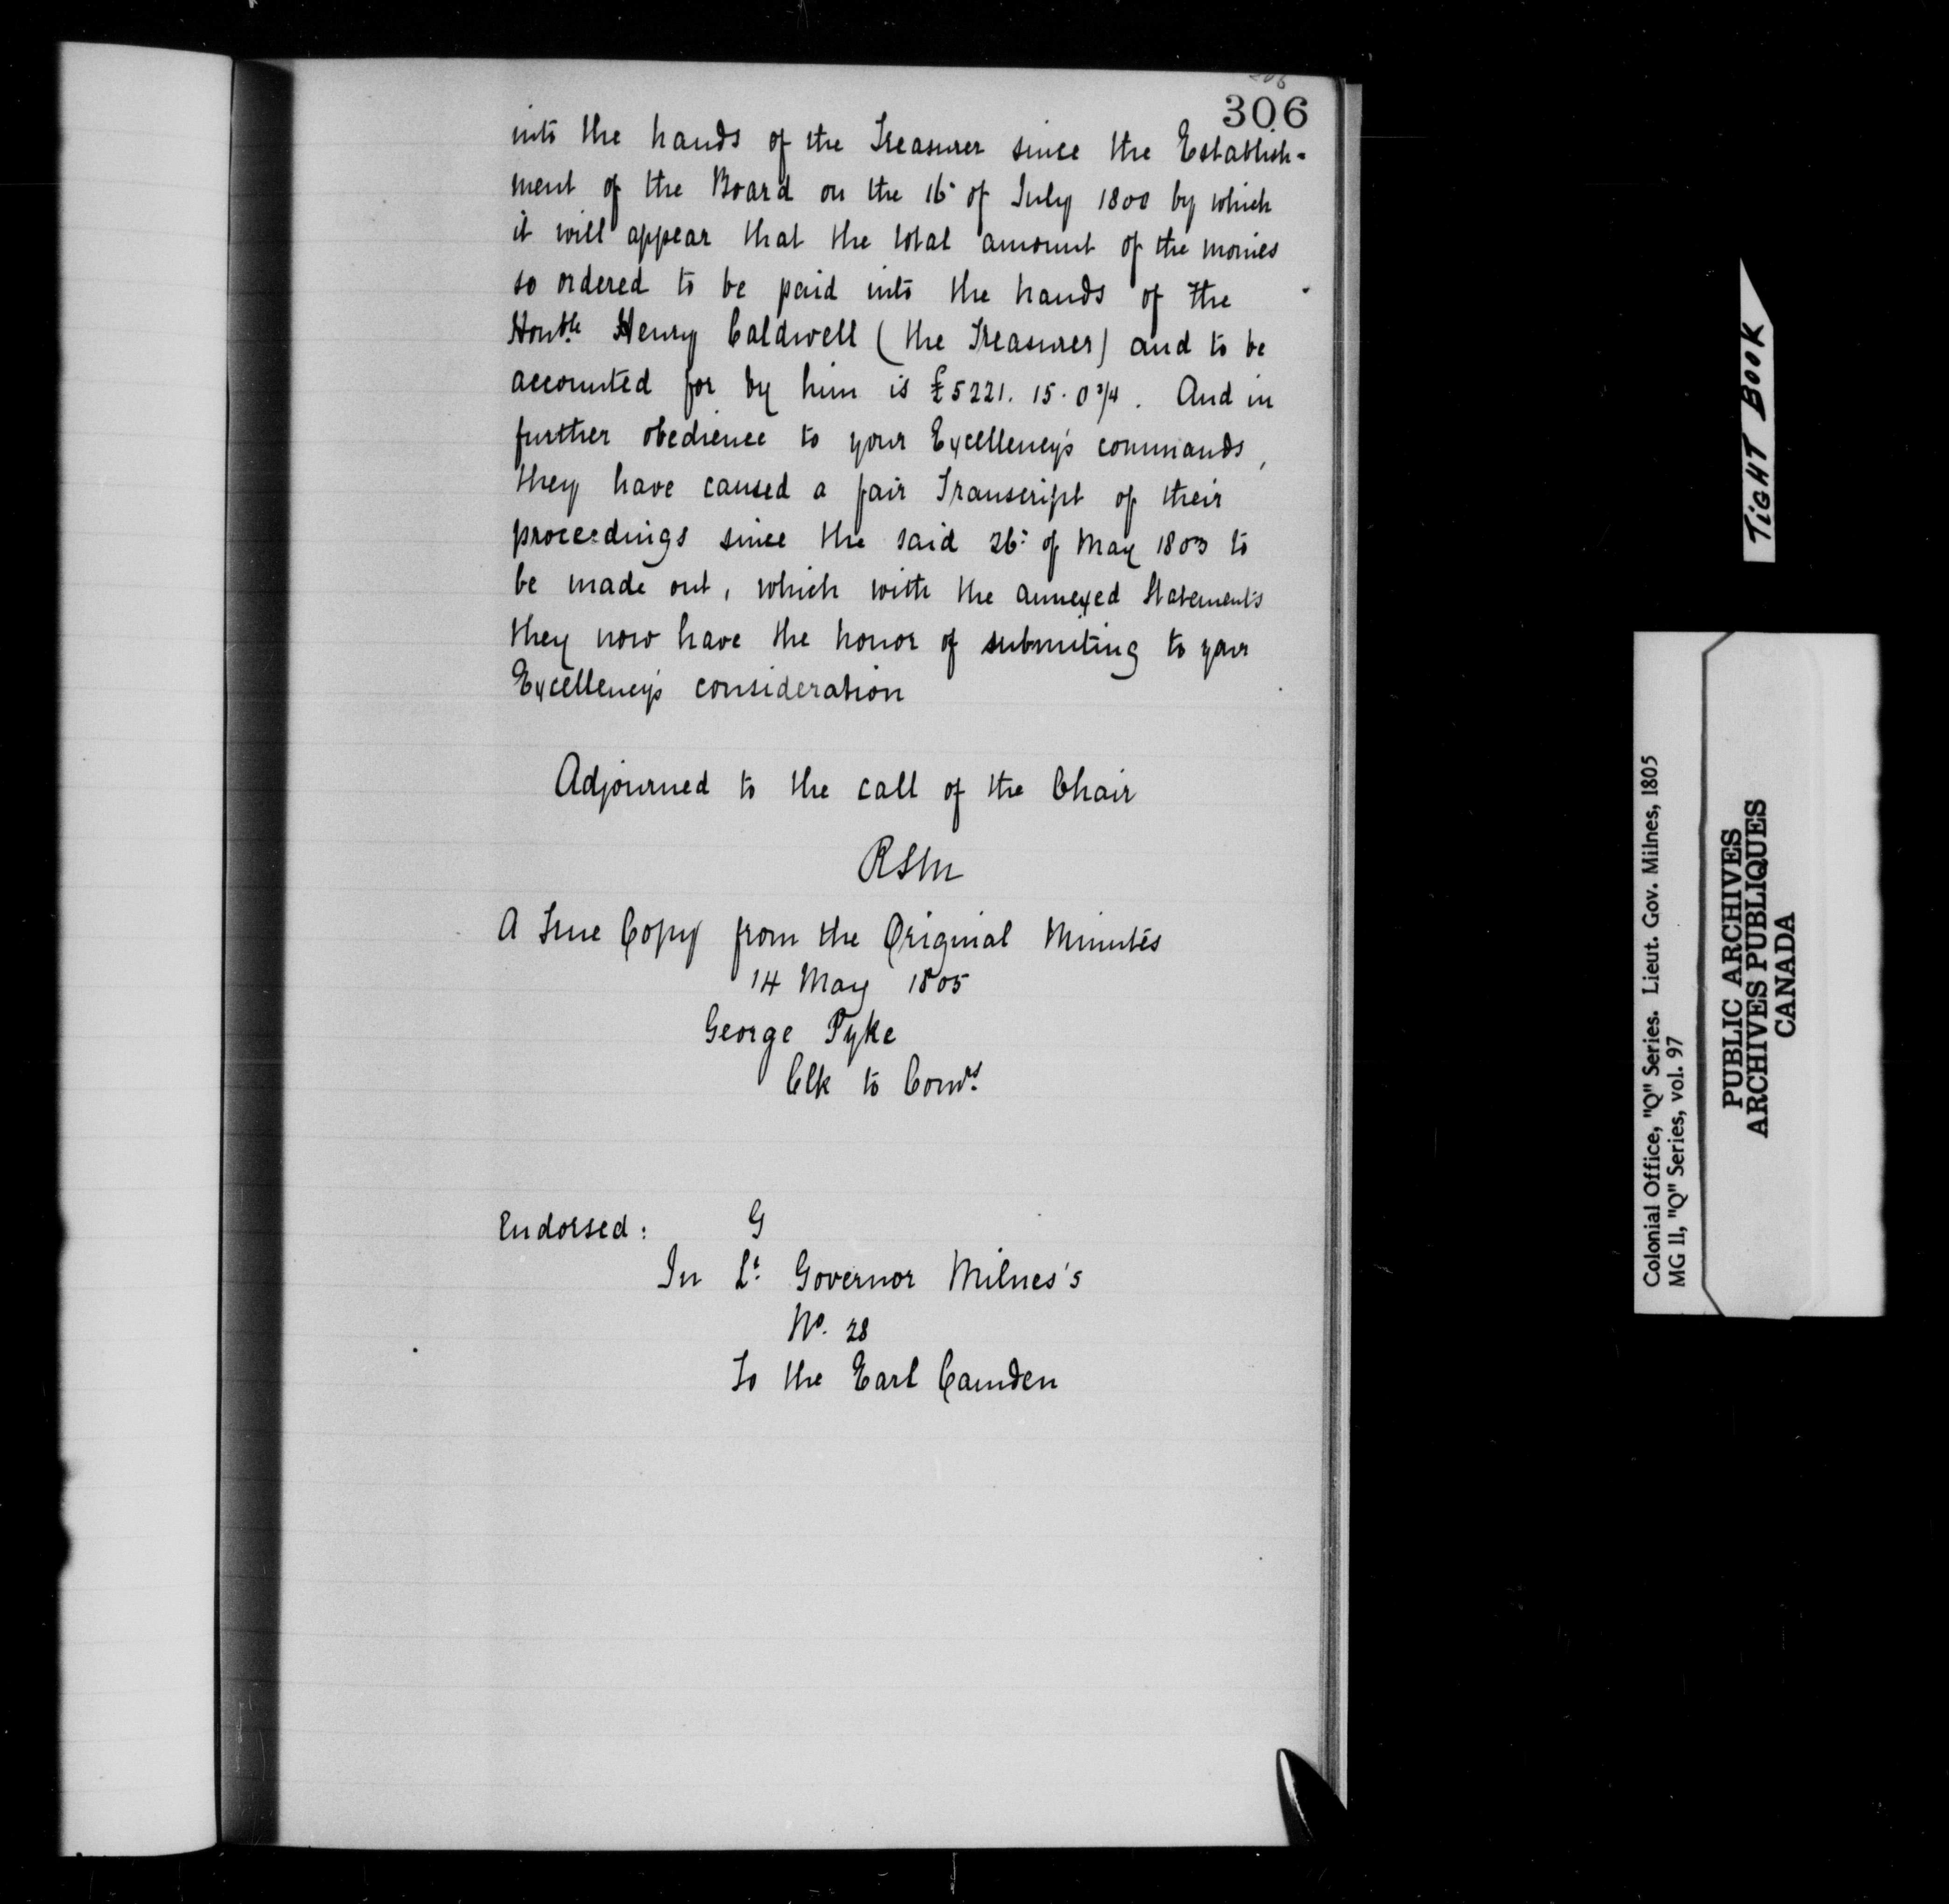 306
into the hands of the Treasurer since the Establish-
ment of the Board on the 16 of July 1800 by which
it will appear that the total amount of the monies
so ordered to be paid into the hands of the
Honble. Henry Caldwell (the Treasurer) and to be
accounted for by him is £5221. 15. 0 3/4. And in
further obedience to your Excellency's commands,
they have caused a fair Transcript of their
proceedings since the said 26: of May 1803 to
be made out, which with the annexed Statements
they now have the honor of submiting to your
Excellency's consideration
Adjourned to the call of the Chair
RSM
A True Copy from the Original Minutes
14 May 1805
George Pyke
Clk to Comrs.
Endorsed: G
In Lt. Governor Milnes's
No. 28
To the Earl Camden
TIGHT BOOK
Colonial Office, "Q" Series. Lieut. Gov. Milnes, 1805
MG 11, "Q" Series, vol. 97
PUBLIC ARCHIVES
ARCHIVES PUBLIQUES
CANADA